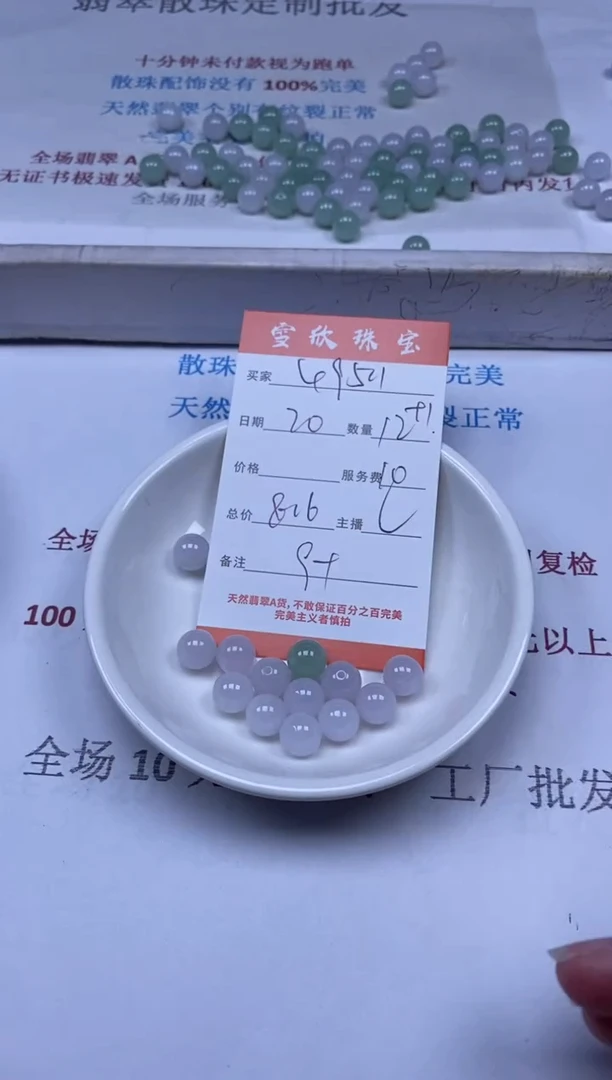 翡翠散珠定制批发
十分钟未付款视为跑单
散珠配饰没有 100%完美
天然翡翠个别有纹裂正常
全场翡翠 A
无证书极速发
内发1
全场服务
雪欣珠宝
散珠
完美
买家
天然
裂正常
日期 20 数量 12+1
价格 服务费 10
总价 816 主播
全场
复检
备注 9+
100
以上
天然翡翠A货，不敢保证百分之百完美
完美主义者慎拍
全场 10
工厂批发